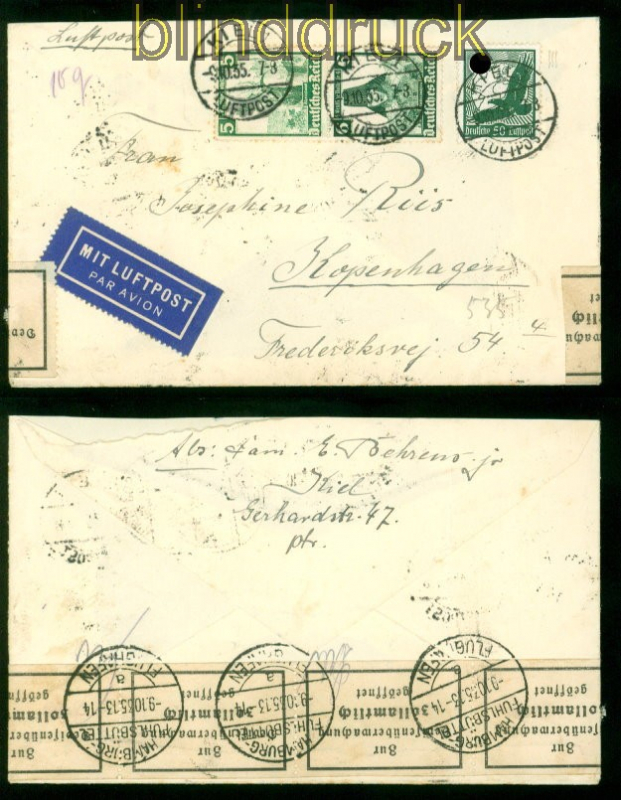 blinddruck.de
Luftpost
18g
KIEL
-9.10.35. 7-8
LUFTPOST
5
5
Deutsches Reich
KIEL
-9.10.35. 7-8
LUFTPOST
Deutsches Reich
KIEL
LUFTPOST
Deutsche 50 Luftpost
Frau
Josephine Riis
Kopenhagen
535
Frederiksvej 54 4
MIT LUFTPOST
PAR AVION
Abs: Fam. E. Behrens jr
Kiel
Gerhardstr. 47.
ptr.
HAMBURG-FUHLSBÜTTEL
FLUGHAFEN
a
-9.10.35.13-14
HAMBURG-FUHLSBÜTTEL
FLUGHAFEN
a
-9.10.35.13-14
HAMBURG-FUHLSBÜTTEL
FLUGHAFEN
a
-9.10.35.13-14
Zur
Devisenüberwachung
zollamtlich
geöffnet
Zur
Devisenüberwachung
zollamtlich
geöffnet
Zur